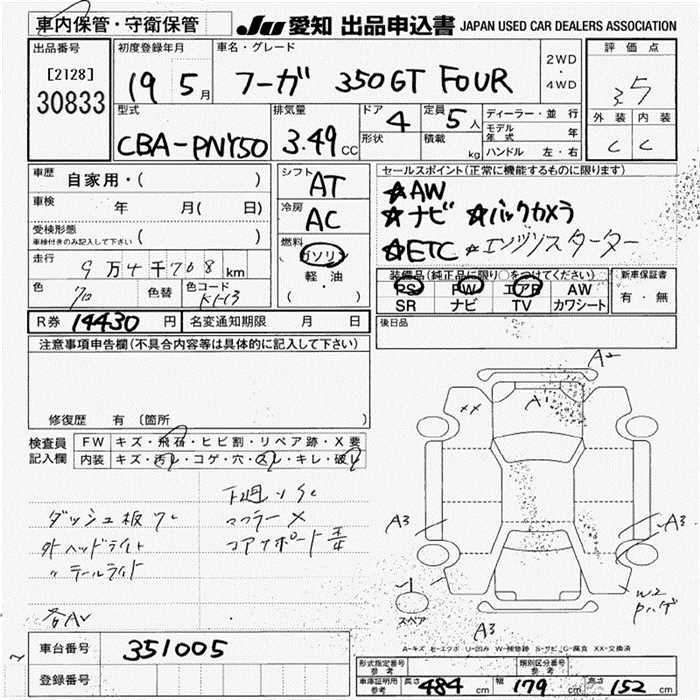 車内保管・守衛保管
JU 愛知 出品申込書 JAPAN USED CAR DEALERS ASSOCIATION
出品番号
[2128]
30833
初度登録年月
19 5月
車名・グレード
フーガ 350GT FOUR
2WD
・
4WD
評価点
3.5
外装 内装
C C
型式
CBA-PNY50
排気量
3.49 CC
ドア 4
形状
定員 5人
積載 kg
ディーラー・並行
モデル年式 年
ハンドル 左・右
車歴
自家用・( )
車検 年 月( 日)
受検形態
車検付きのみ記入して下さい ( )
走行 9万4千708km
色 クロ
色替
色コード KH3
シフト AT
冷房 AC
燃料
ガソリン
軽・油
( )
セールスポイント(正常に機能するものに限ります)
☆AW
☆ナビ ☆バックカメラ
☆ETC ☆エンジンスターター
装備品(純正品に限り○をつけてください)
PS PW エアB AW
SR ナビ TV カワシート
新車保証書
有・無
R券 14430円
名変通知期限 月 日
後日品
注意事項申告欄(不具合内容等は具体的に記入して下さい)
修復歴 有〔箇所
検査員記入欄
FW キズ・飛石・ヒビ割・リペア跡・X要
内装 キズ・汚レ・コゲ・穴・スレ・キレ・破レ
ダッシュ板
外ヘッドライト
〃テールライト
下廻りSC
マフラーX
コアサポート
各AU
A2
A1
XX
A3
A3
A3
W2
Pハゲ
スペア
A-キズ E-エクボ U-凹み W-補修跡 S-サビ C-腐食 XX-交換済
車台番号 351005
登録番号
形式指定番号参考
類別区分番号参考
車庫証明用参考 長さ 484cm 幅 179cm 高さ 152cm